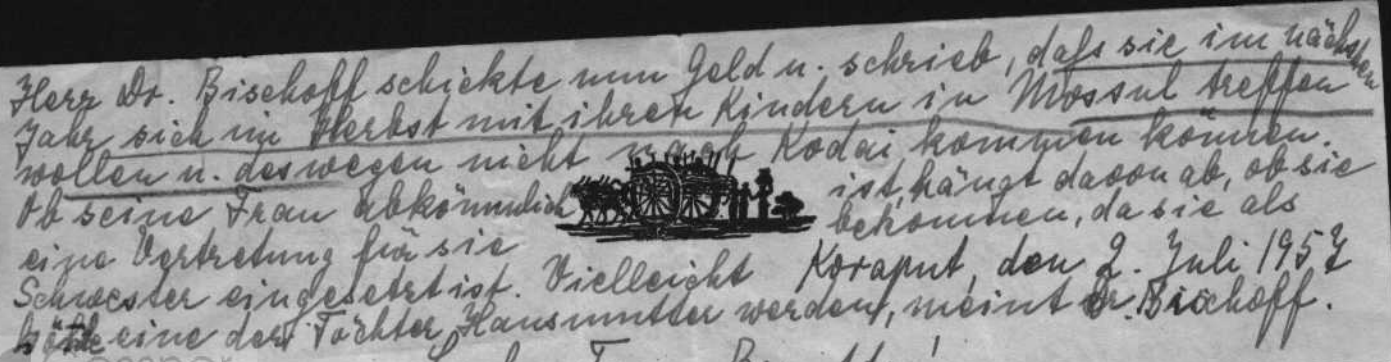 Herr Dr. Bischoff schickte nun Geld u. schrieb, daß sie im nächsten
Jahr sich im Herbst mit ihren Kindern in Mossul treffen
wollen u. deswegen nicht nach Kodai kommen können.
Ob seine Frau abkömmlich ist, hängt davon ab, ob sie
eine Vertretung für sie bekommen, da sie als
Schwester eingesetzt ist. Vielleicht Koraput, den 2. Juli 1957
eine der Töchter Hausmutter werden, meint Dr. Bischoff.